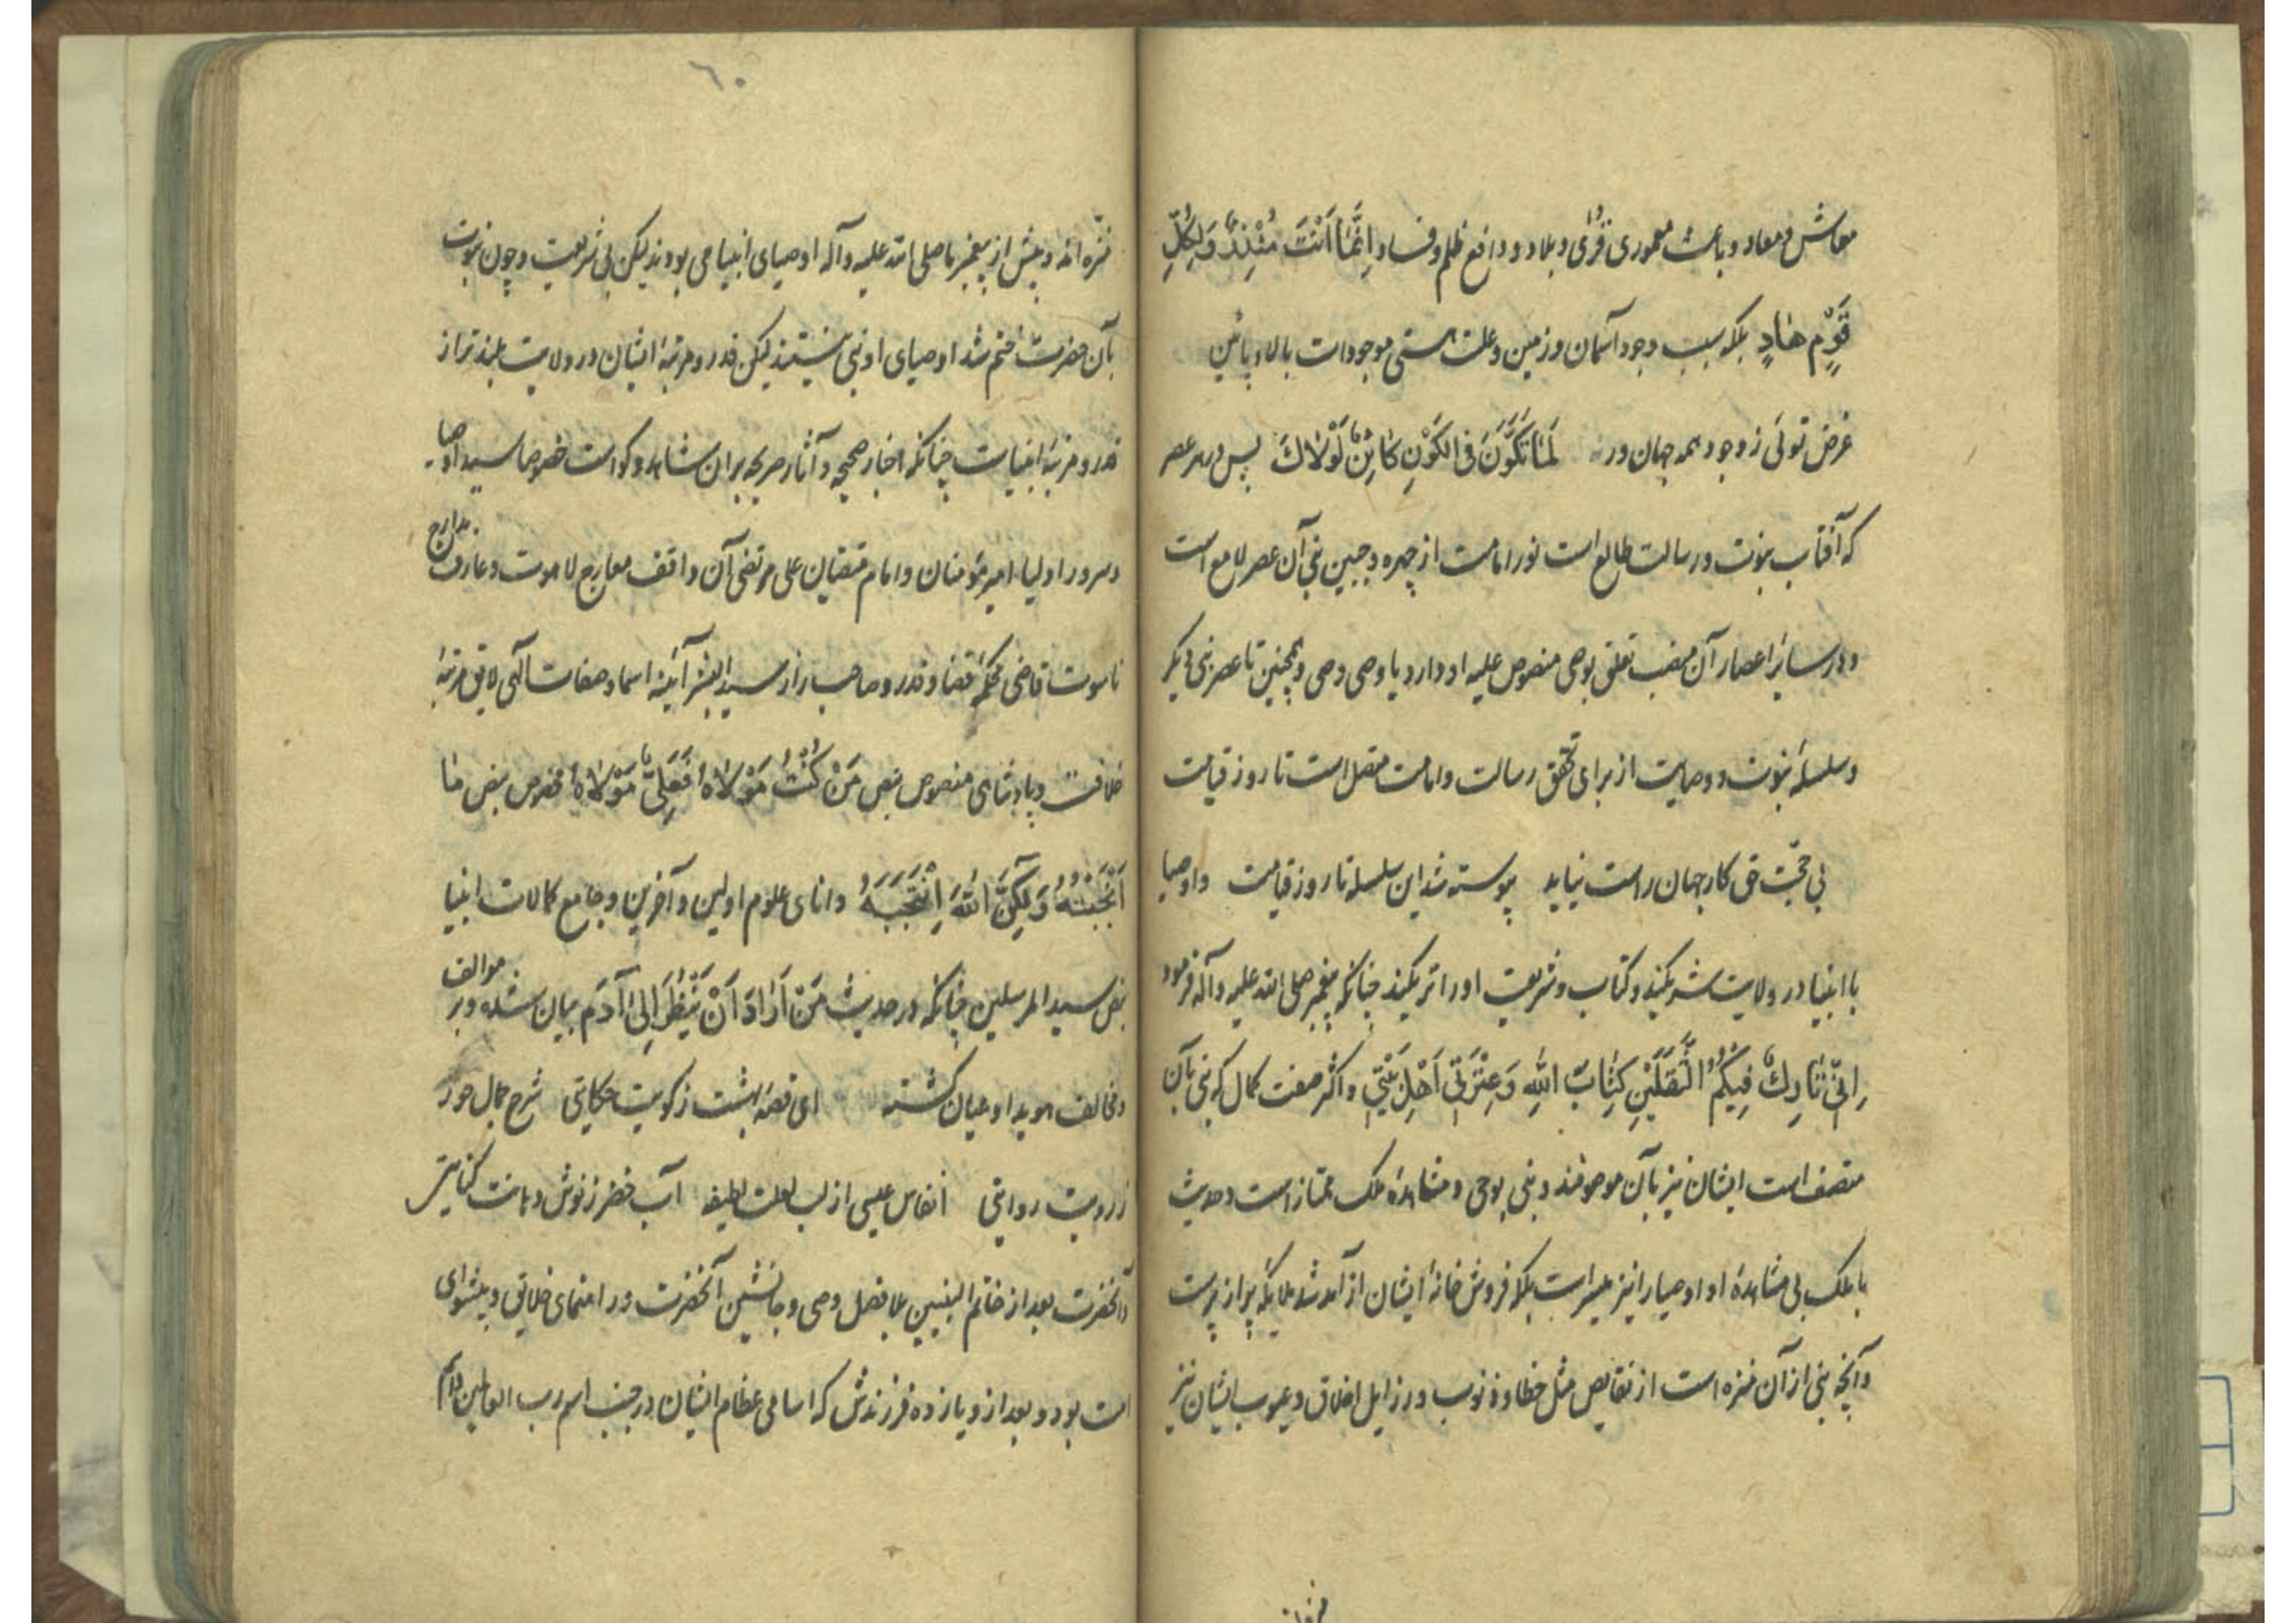 معاش و معاد و باعث معموری قُرٰی و بلاد و دافع ظلم و فساد اِنَّمٰا اَنْتَ مُنْذِرٌ وَلِکُلِّ
قَوْمٍ هٰادٍ بلکه سبب وجود آسمان و زمین و علت هستی موجودات بالا و پائین
غرض توئی ز وجود همه جهان ورنه لَمٰا تَکَوَّنَ فِی الکَوْنِ کٰائِنٌ لَوْلاٰکَ پس در هر عصر
که آفتاب نبوت و رسالت طالع است نور امامت از چهره و جبین نبی آن عصر لامع است
و در سایر اعصار آن منصب تعلق بوصی منصوص علیه او دارد یا وصی وصی و همچنین تا عصر نبی دیگر
و سلسلهٔ نبوت و وصایت از برای تحقق رسالت و امامت متصل است تا روز قیامت
بی حجّت حق کار جهان راست نیاید پیوسته شد این سلسله تا روز قیامت و اوصیا
با انبیا در ولایت شریکند و کتاب و شریعت او را شریکند چنانکه پیغمبر صلی الله علیه و آله فرمود
اِنّی تٰارِکٌ فِیکُمُ الثَّقَلَیْنِ کِتٰابَ اللّٰهِ وَ عِتْرَتی اَهْلِ بَیْتی و اکثر صفت کمال که نبی بآن
متصف است ایشان نیز بآن موصوفند و نبی بوحی و مشاهدهٔ ملک ممتاز است و حدیث
با ملک بی مشاهدهٔ او اوصیا را نیز میسر است بلکه فروش خانهٔ ایشان از آمد شد ملایکه پر از پرست
و آنچه نبی از آن منزه است از نقایص مثل خطا و ذنوب و رزایل اخلاق و عیوب ایشان نیز
منزه اند
۶۰
منزه اند و پیش از پیغمبر ما صلی الله علیه و آله اوصیای انبیا می بودند لیکن بی شریعت و چون نبوت
بآن حضرت ختم شد اوصیای او نبی نیستند لیکن قدر و مرتبهٔ ایشان در ولایت بلندتر از
قدر و مرتبهٔ انبیاست چنانکه اخبار صحیحه و آثار صریحه بر آن شاهد و گواست خصوصا سید اوصیا
و سرور اولیا امیر مؤمنان و امام متقیان علی مرتضی آن واقف معارج لاهوت و عارف مدارج
ناسوت قاضی محکمهٔ قضا و قدر و صاحب راز سید البشر آئینه اسما و صفات الهی لایق مرتبهٔ
خلافت و پادشاهی منصوص بنص مَنْ کُنْتُ مَوْلاٰهُ فَعَلِیٌّ مَوْلاٰهُ مخصوص بنص مٰا
اَنْتَجَبْتُهُ وَلٰکِنَّ اللّٰهَ اِنْتَجَبَهُ دانای علوم اولین و آخرین و جامع کمالات انبیا
بنص سید المرسلین چنانکه در حدیث مَنْ اَرٰادَ اَنْ یَنْظُرَ اِلیٰ آدَم بیان شده و بر موالف
و مخالف هویدا و عیان گشته ای قصهٔ بهشت ز کویت حکایتی شرح جمال حور
ز رویت روایتی انفاس عیسی از لب لعلت لطیفه آب خضر ز نوش دهانت کنایتی
و آنحضرت بعد از خاتم النبیین بلا فصل وصی و جانشین آنحضرت و راهنمای خلایق و پیشوای
امت بود و بعد از و یازده فرزندش که اسامی عظام ایشان در جنب اسم رب العالمین